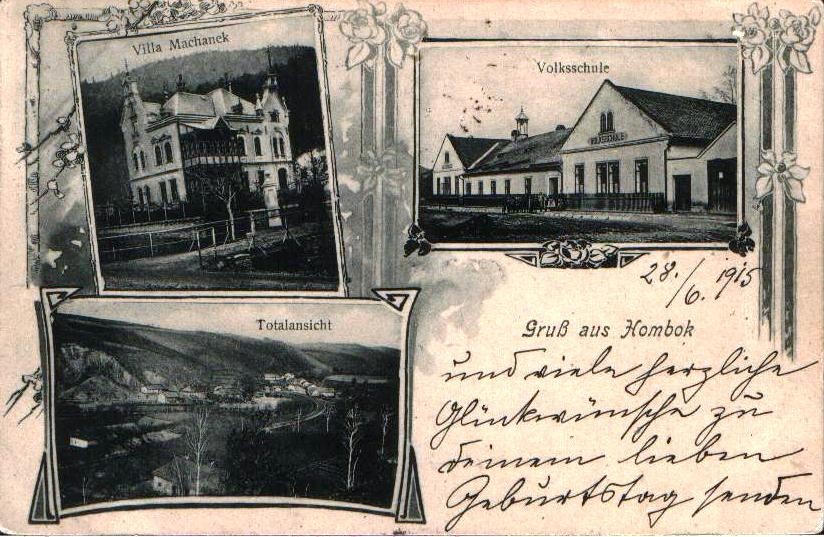 Villa Machanek
Volksschule
VOLKSSCHULE
Totalansicht
28./6. 1915
Gruß aus Hombok
und viele herzliche
Glückwünsche zu
deinem lieben
Geburtstag senden